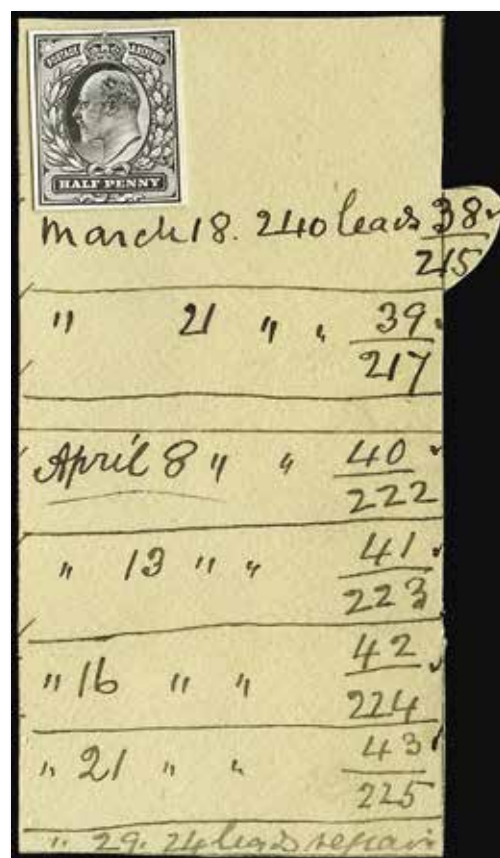 POSTAGE REVENUE
HALF PENNY
March 18. 240 leads 38
215
" 21 " " 39
217
April 8 " " 40
222
" 13 " " 41
223
" 16 " " 42
224
" 21 " " 43
225
" 29. 24 leads repair